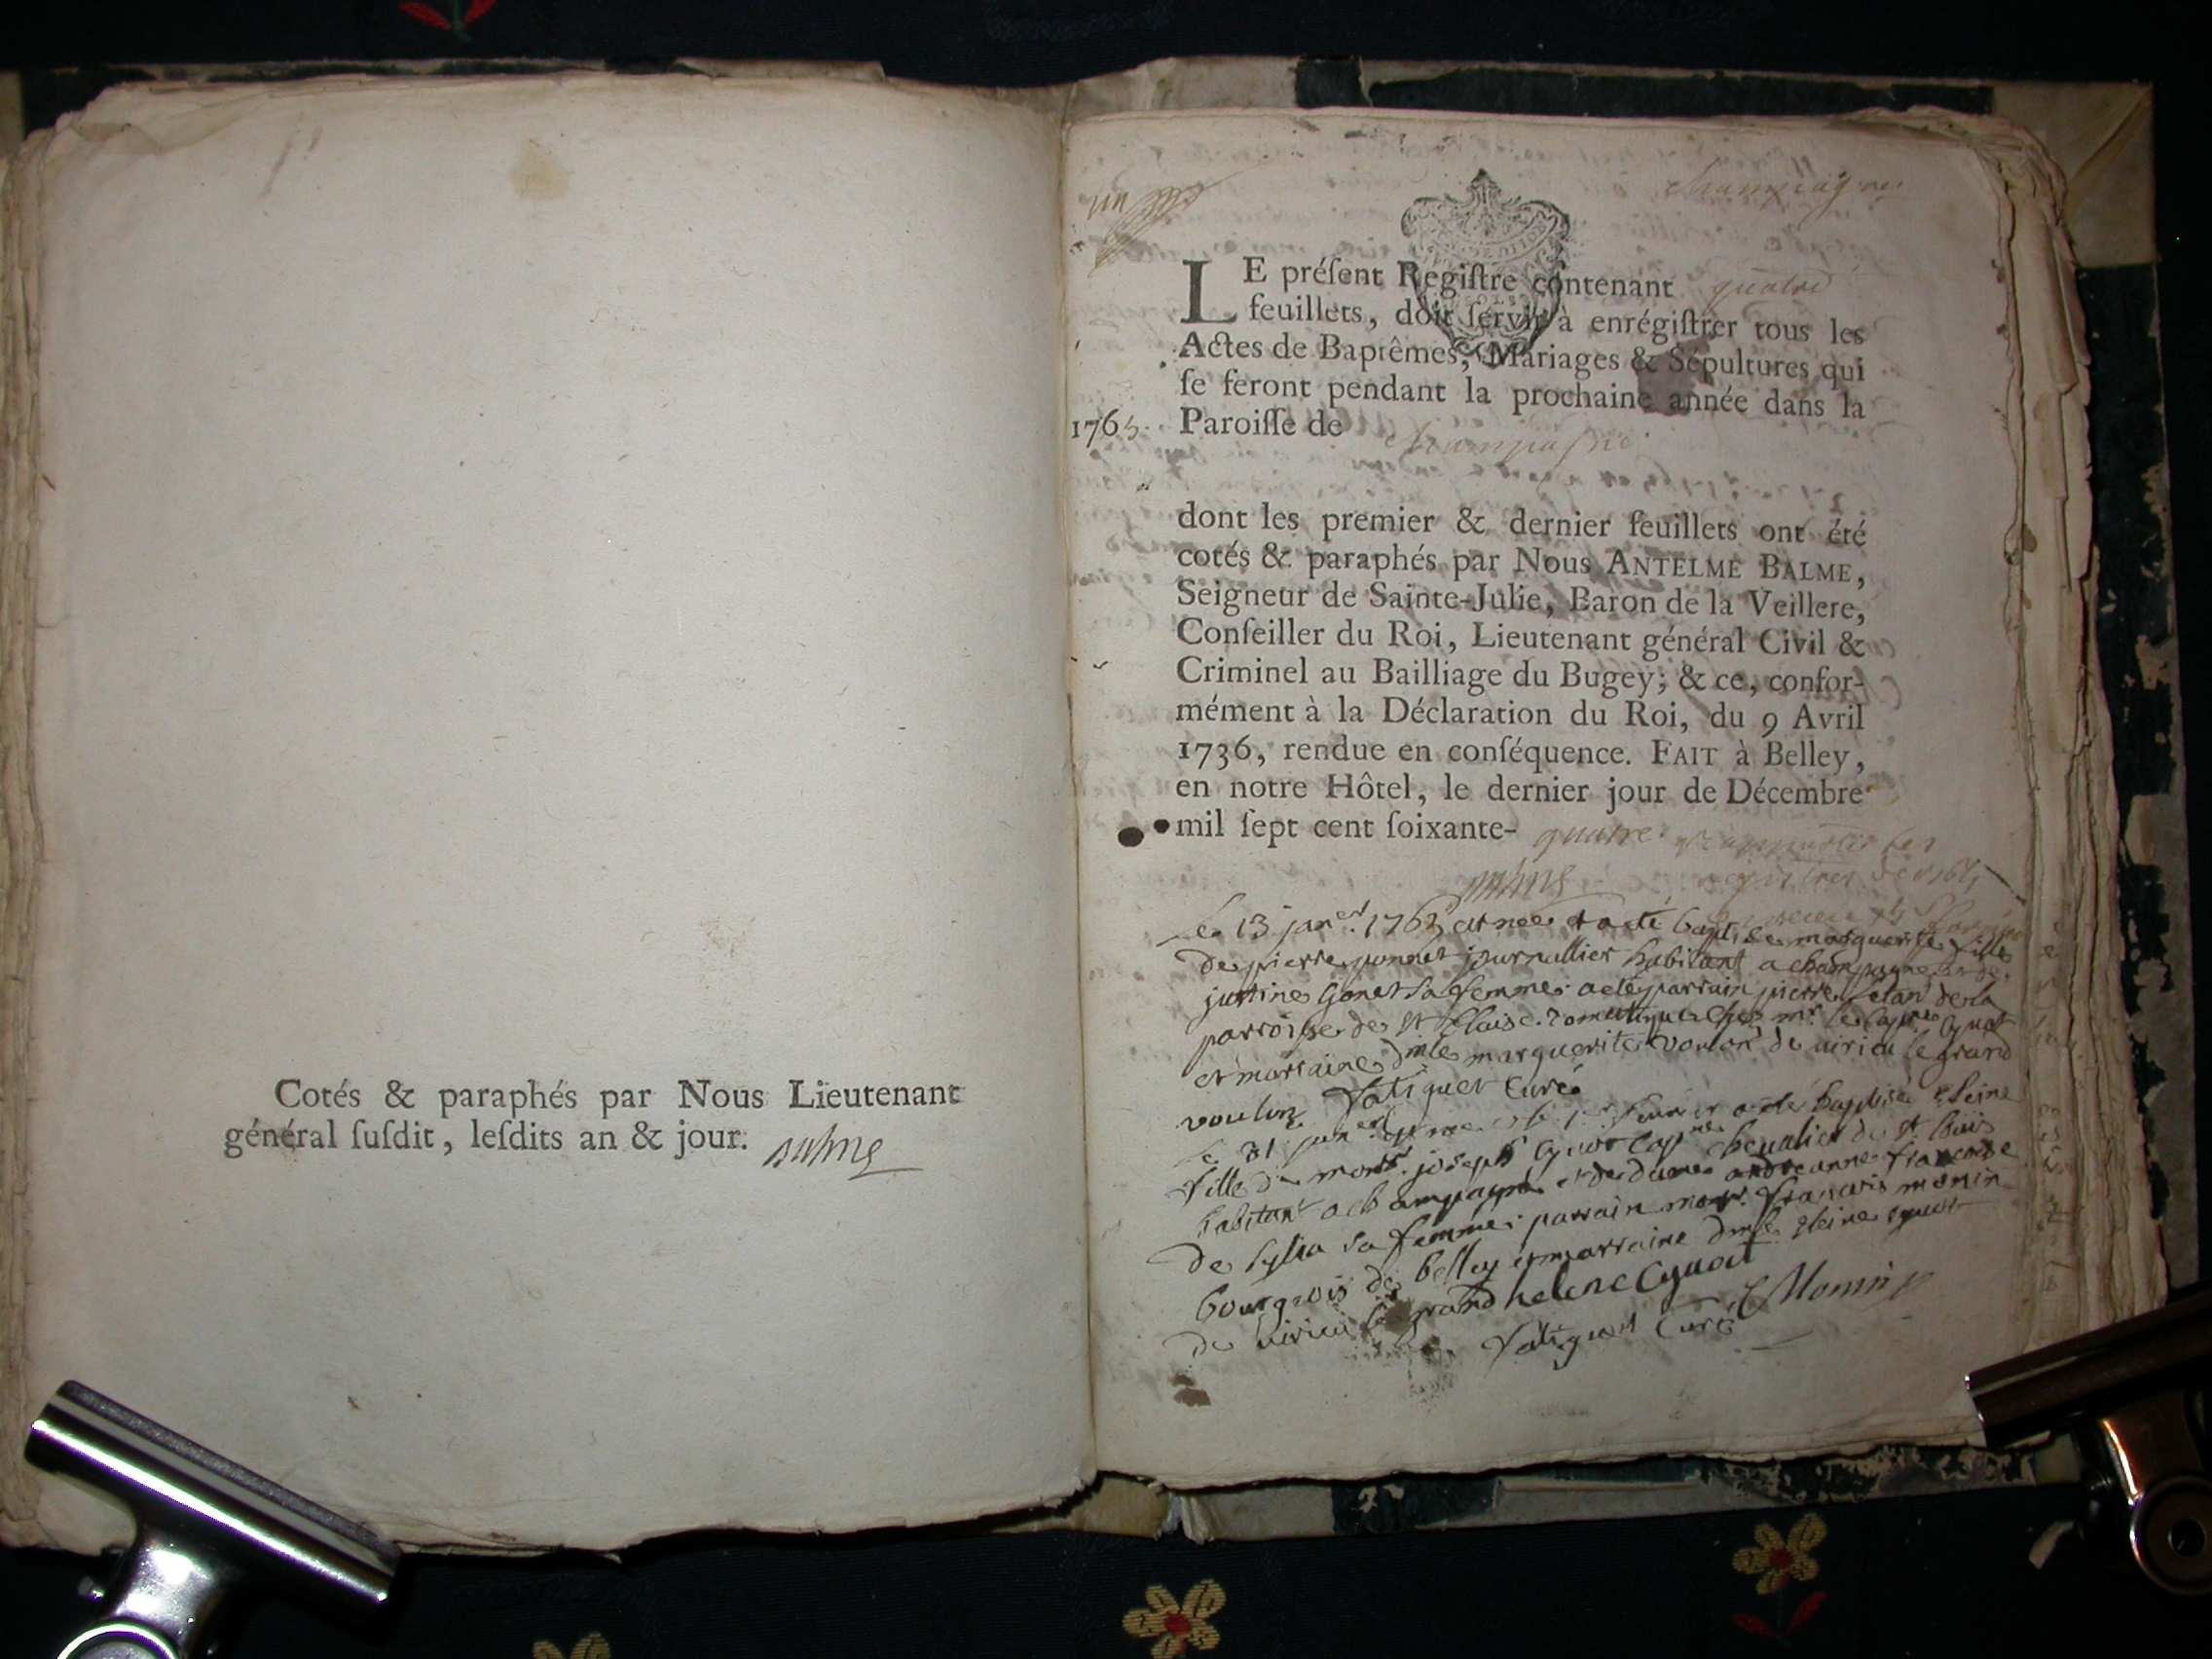 Cotés & paraphés par Nous Lieutenant
général ſuſdit, leſdits an & jour.
un
champagne
LE préſent Regiſtre contenant quatre
feuillets, doit ſervir à enrégiſtrer tous les
Actes de Baptêmes, Mariages & Sépultures qui
ſe feront pendant la prochaine année dans la
1765. Paroiſſe de champagne
dont les premier & dernier feuillets ont été
cotés & paraphés par Nous ANTELME BALME,
Seigneur de Sainte-Julie, Baron de la Veillere,
Conſeiller du Roi, Lieutenant général Civil &
Criminel au Bailliage du Bugey; & ce, confor-
mément à la Déclaration du Roi, du 9 Avril
1736, rendue en conſéquence. FAIT à Belley,
en notre Hôtel, le dernier jour de Décembre
mil ſept cent ſoixante- quatre
le 13 janer. 1765 est nee et a eté baptisee marguerite fille
de pierre ponnet journallier habitant a champagne et de
justine gonet sa femme a eté parrain pierre de la
parroisse de st blaise domestique chez mr le capne Cyvot
et marraine dmle marguerite voulon de virieu le grand
voulon Fatiquet curé
le 31 janer est nee et le 1er fevrier a eté baptisée heleine
fille de monsr. joseph cyvot capne chevalier de st louis
habitant a champagne et de dame andreanne francoise
de sa femme parrain monsr. francois monin
bourgeois de belley et marraine dmle heleine cyvot
de virieu le grand helene Cyvoct
Fatiquet curé Monin